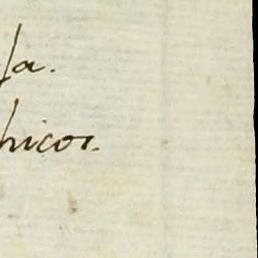 sa.
hicos.